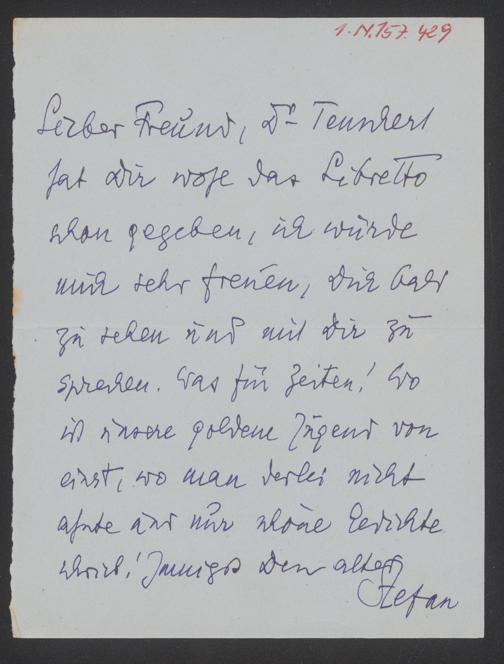 I.N.157.429
Lieber Freund, Dr Tennhert
hat Dir wohl das Libretto
schon gegeben, ich würde
mich sehr freuen, Dich bald
zu sehen und mit Dir zu
sprechen. Was für Zeiten! Wo
ist unsere goldene Jugend von
einst, wo man derlei nicht
ahnte und nur schöne Gedichte
schrieb! Innigst Dein alter
Stefan